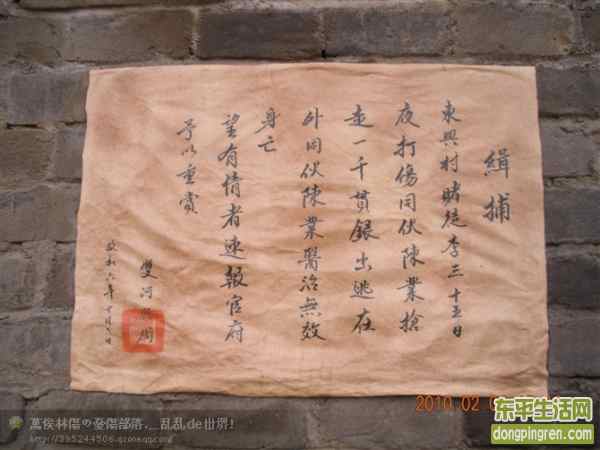 緝捕
東興村賭徒李三十五日
夜打傷同伙陳業搶
走一千貫銀出逃在
外同伙陳業醫治無效
身亡
望有情者速報官府
予以重賞
雙河
政和六年十月八日
2010.02
萬俟林傷の憂傷部落._亂乱de世界!
http://395244506.qzone.qq.com/
东平生活网
dongpingren.com